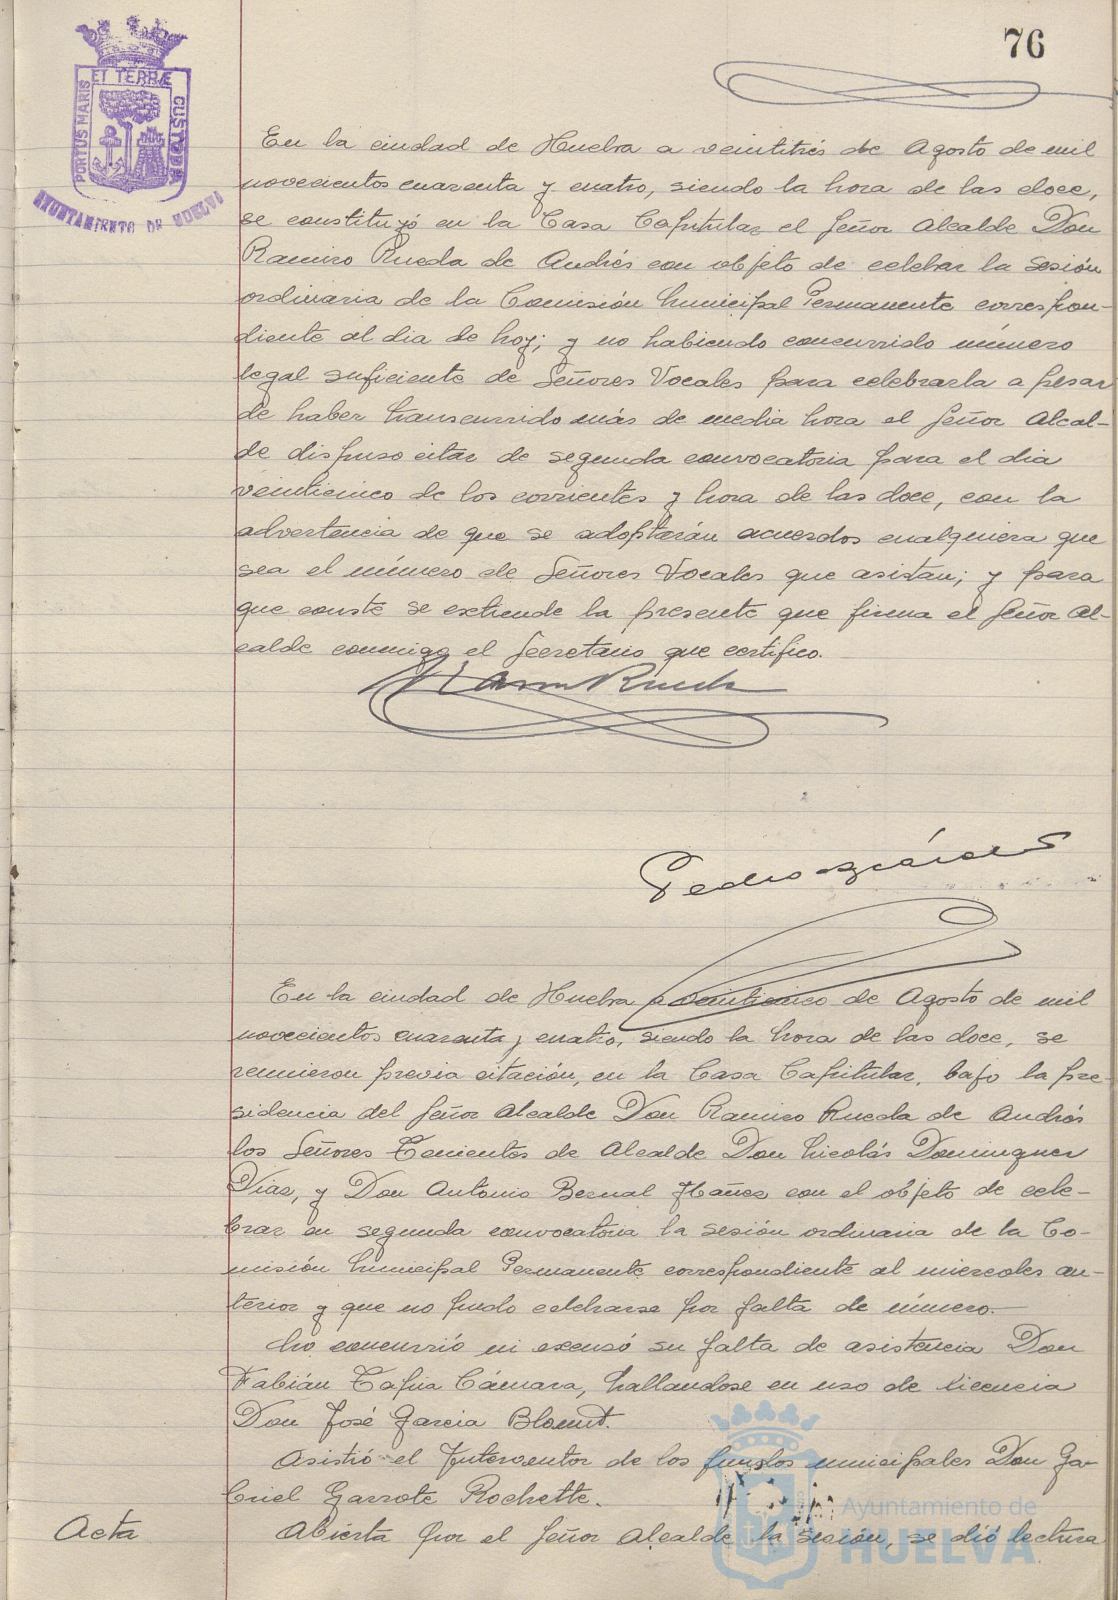 76
PORTUS MARIS ET TERRÆ CUSTODIA
AYUNTAMIENTO DE HUELVA
En la ciudad de Huelva a veintitrés de Agosto de mil
novecientos cuarenta y cuatro, siendo la hora de las doce,
se constituyó en la Casa Capitular el Señor Alcalde Don
Ramiro Rueda de Andrés con objeto de celebrar la sesión
ordinaria de la Comisión Municipal Permanente correspon-
diente al dia de hoy; y no habiendo concurrido número
legal suficiente de Señores Vocales para celebrarla a pesar
de haber transcurrido más de media hora el Señor Alcal-
de dispuso citar de segunda convocatoria para el dia
veinticinco de los corrientes y hora de las doce, con la
advertencia de que se adoptarán acuerdos cualquiera que
sea el número de Señores Vocales que asistan; y para
que conste se extiende la presente que firma el Señor Al-
calde conmigo el Secretario que certifico.
Ramiro Rueda
Pedro
En la ciudad de Huelva a veinticinco de Agosto de mil
novecientos cuarenta y cuatro, siendo la hora de las doce, se
reunieron previa citación, en la Casa Capitular, bajo la pre-
sidencia del Señor Alcalde Don Ramiro Rueda de Andrés
los Señores Tenientes de Alcalde Don Nicolás Dominguez
Diaz, y Don Antonio Bernal Ibañez con el objeto de cele-
brar en segunda convocatoria la sesión ordinaria de la Co-
misión Municipal Permanente correspondiente al miercoles an-
terior y que no pudo celebrarse por falta de número.—
No concurrió ni excusó su falta de asistencia Don
Fabián Tapia Cámara, hallandose en uso de licencia
Don José Garcia Blount.
Asistió el Interventor de los fondos municipales Don Ga-
briel Garrote Rochette.
Acta Abierta por el Señor Alcalde la sesión, se dió lectura
Ayuntamiento de
HUELVA